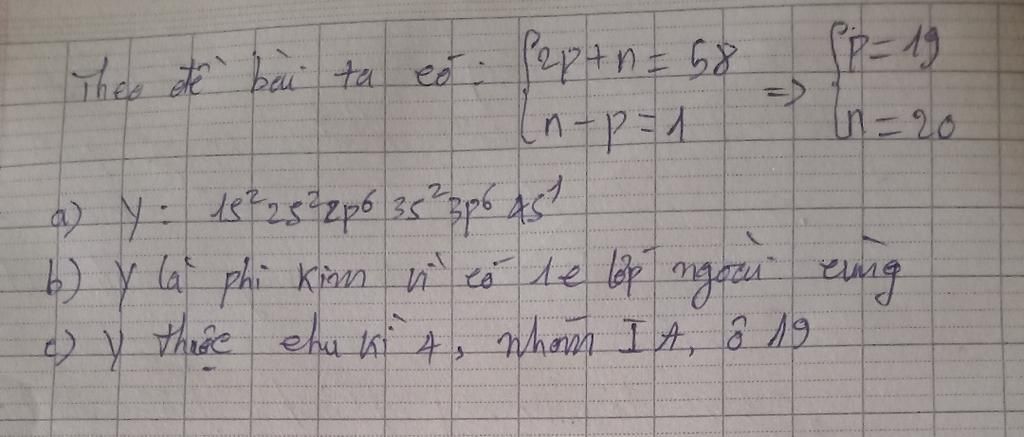 Theo đề bài ta có: {2p+n=58 => {p=19
{n-p=1 {n=20
a) Y: 1s²2s²2p⁶3s²3p⁶4s¹
b) Y là phi kim vì có 1e lớp ngoài cùng
c) Y thuộc chu kì 4, nhóm IA, ô 19